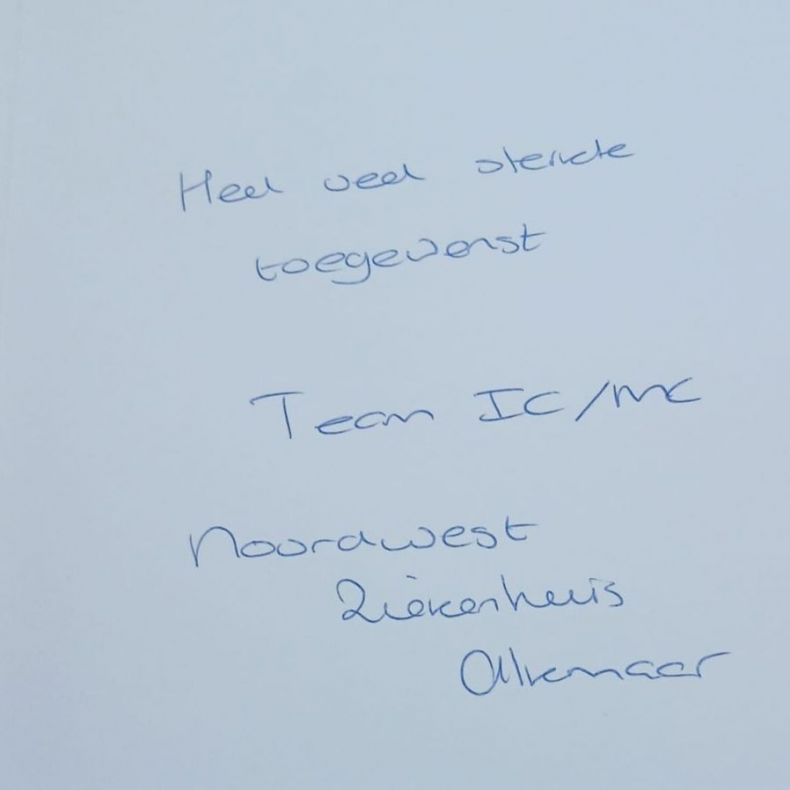 Heel veel sterkte
toegewenst
Team IC/MC
Noordwest
Ziekenhuis
Alkmaar